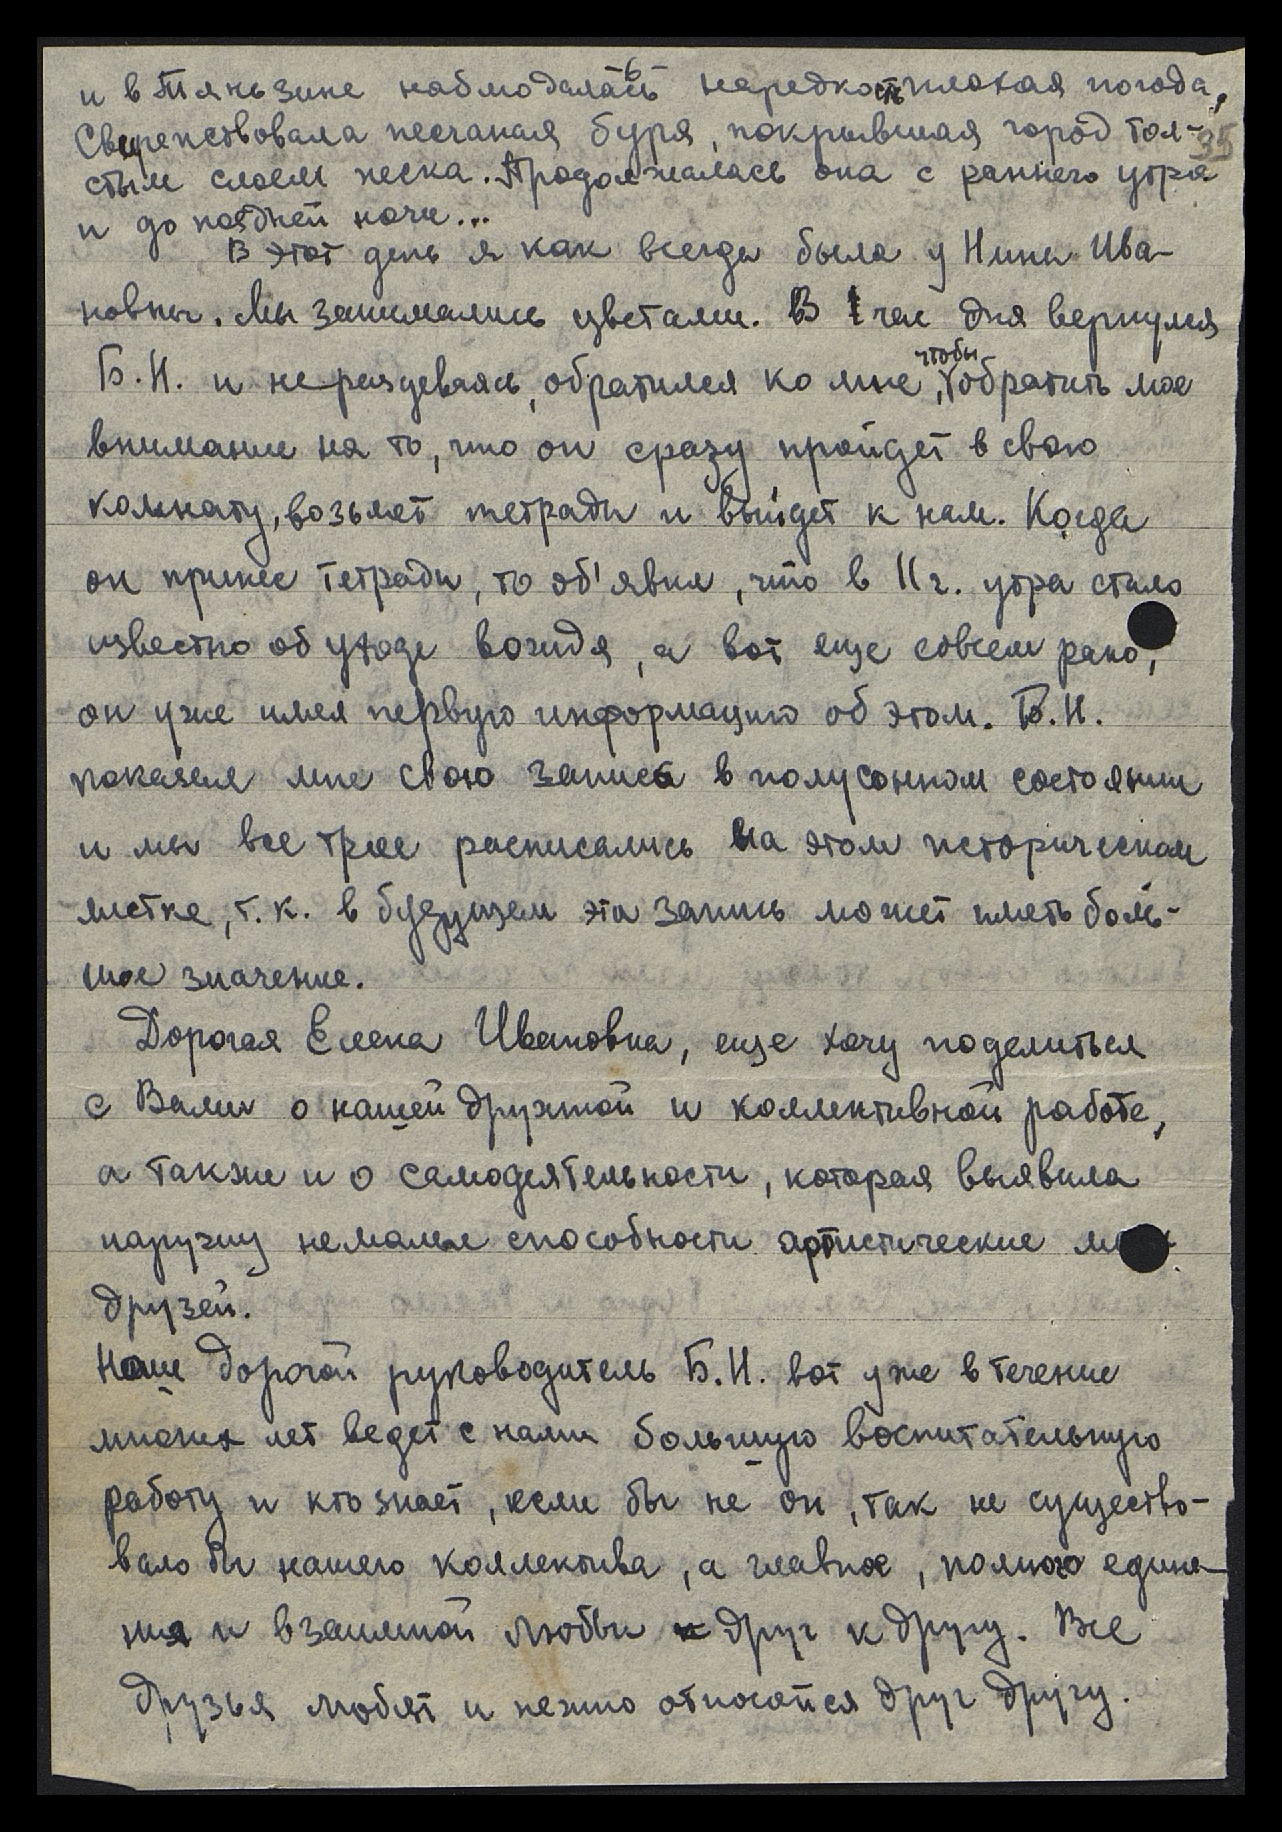 -6-
и в Тяньзине наблюдалась наредкость плохая погода.
35
Свирепствовала песчаная буря, покрывшая город тол-
стым слоем песка. Продолжалась она с раннего утра
и до поздней ночи...
В этот день я как всегда была у Нины Ива-
новны. Мы занимались цветами. В 1 час дня вернулся
Б.Н. и не раздеваясь, обратился ко мне, чтобы обратить мое
внимание на то, что он сразу пройдет в свою
комнату, возьмет тетради и выйдет к нам. Когда
он принес тетради, то об'явил, что в 11 г. утра стало
известно об уходе вождя, а вот еще совсем рано,
он уже имел первую информацию об этом. Б.Н.
показал мне свою запись в полусонном состоянии
и мы все трое расписались на этом историческом
листке, т.к. в будущем эта запись может иметь боль-
шое значение.
Дорогая Елена Ивановна, еще хочу поделиться
с Вами о нашей дружной и коллективной работе,
а также и о самодеятельности, которая выявила
наружу немалые способности артистические моих
друзей.
Наш дорогой руководитель Б.Н. вот уже в течение
многих лет ведет с нами большую воспитательную
работу и кто знает, если бы не он, так не существо-
вало бы нашего коллектива, а главное, полного едине-
ния и взаимной любви друг к другу. Все
друзья любят и нежно относятся друг другу.